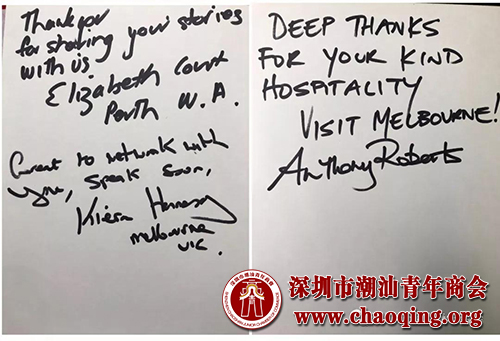 Thank you
for sharing your stories
with us.
Elizabeth Court
Perth W.A.
Great to network with
you, speak soon,
Kiera
Melbourne
VIC.
DEEP THANKS
FOR YOUR KIND
HOSPITALITY
VISIT MELBOURNE!
Anthony Roberts
深圳市潮汕青年商会
www.chaoqing.org